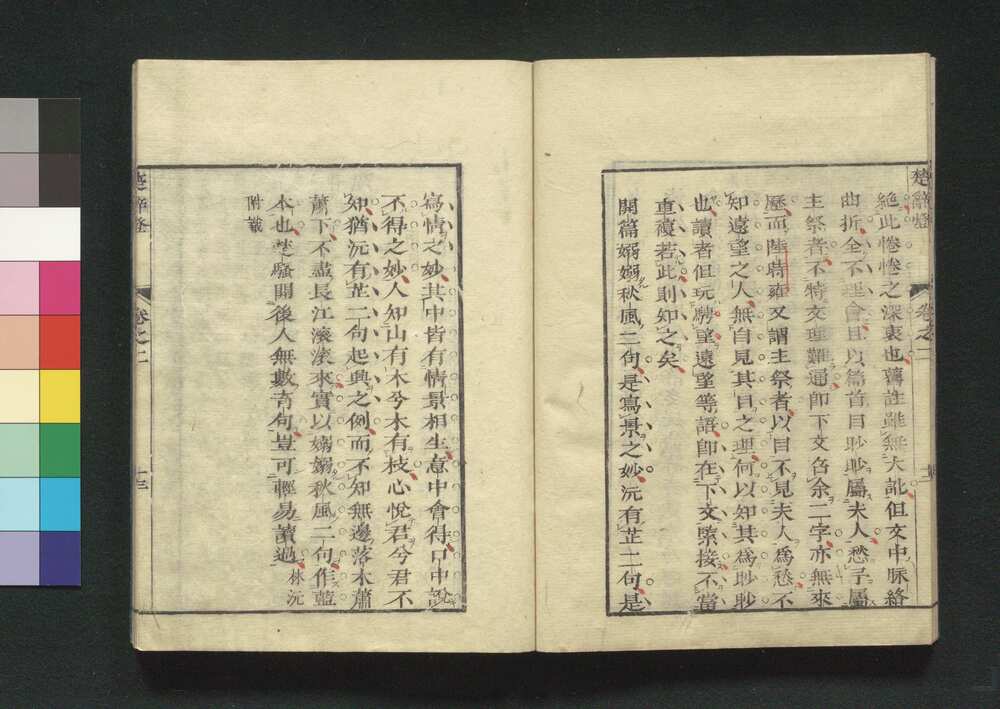 楚辭燈
卷之二
絕此惓惓之深衷也舊註雖無大訛但文中脈絡
曲折全不理會且以篇首目眇眇屬夫人愁予屬
主祭者不特文理難通即下文召余二字亦無來
歷而陸時雍又謂主祭者以目不見夫人為愁不
知遠望之人無自見其目之理何以知其為眇眇
也讀者但玩騁望遠望等語即在下文緊接不當
重複若此則知之矣
開篇嫋嫋秋風二句是寫景之妙沅有芷二句是
寫情之妙其中皆有情景相生意中會得口中說
不得之妙人知山有木兮木有枝心悅君兮君不
知猶沅有芷二句起興之例而不知無邊落木蕭
蕭下不盡長江滾滾來實以嫋嫋秋風二句作藍
本也楚騷開後人無數奇句豈可輕易讀過 林沅
附載
楚辭燈
卷之二
十三